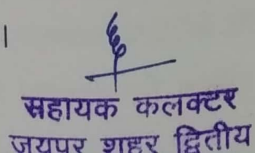 ।
सहायक कलक्टर
जयपुर शहर द्वितीय